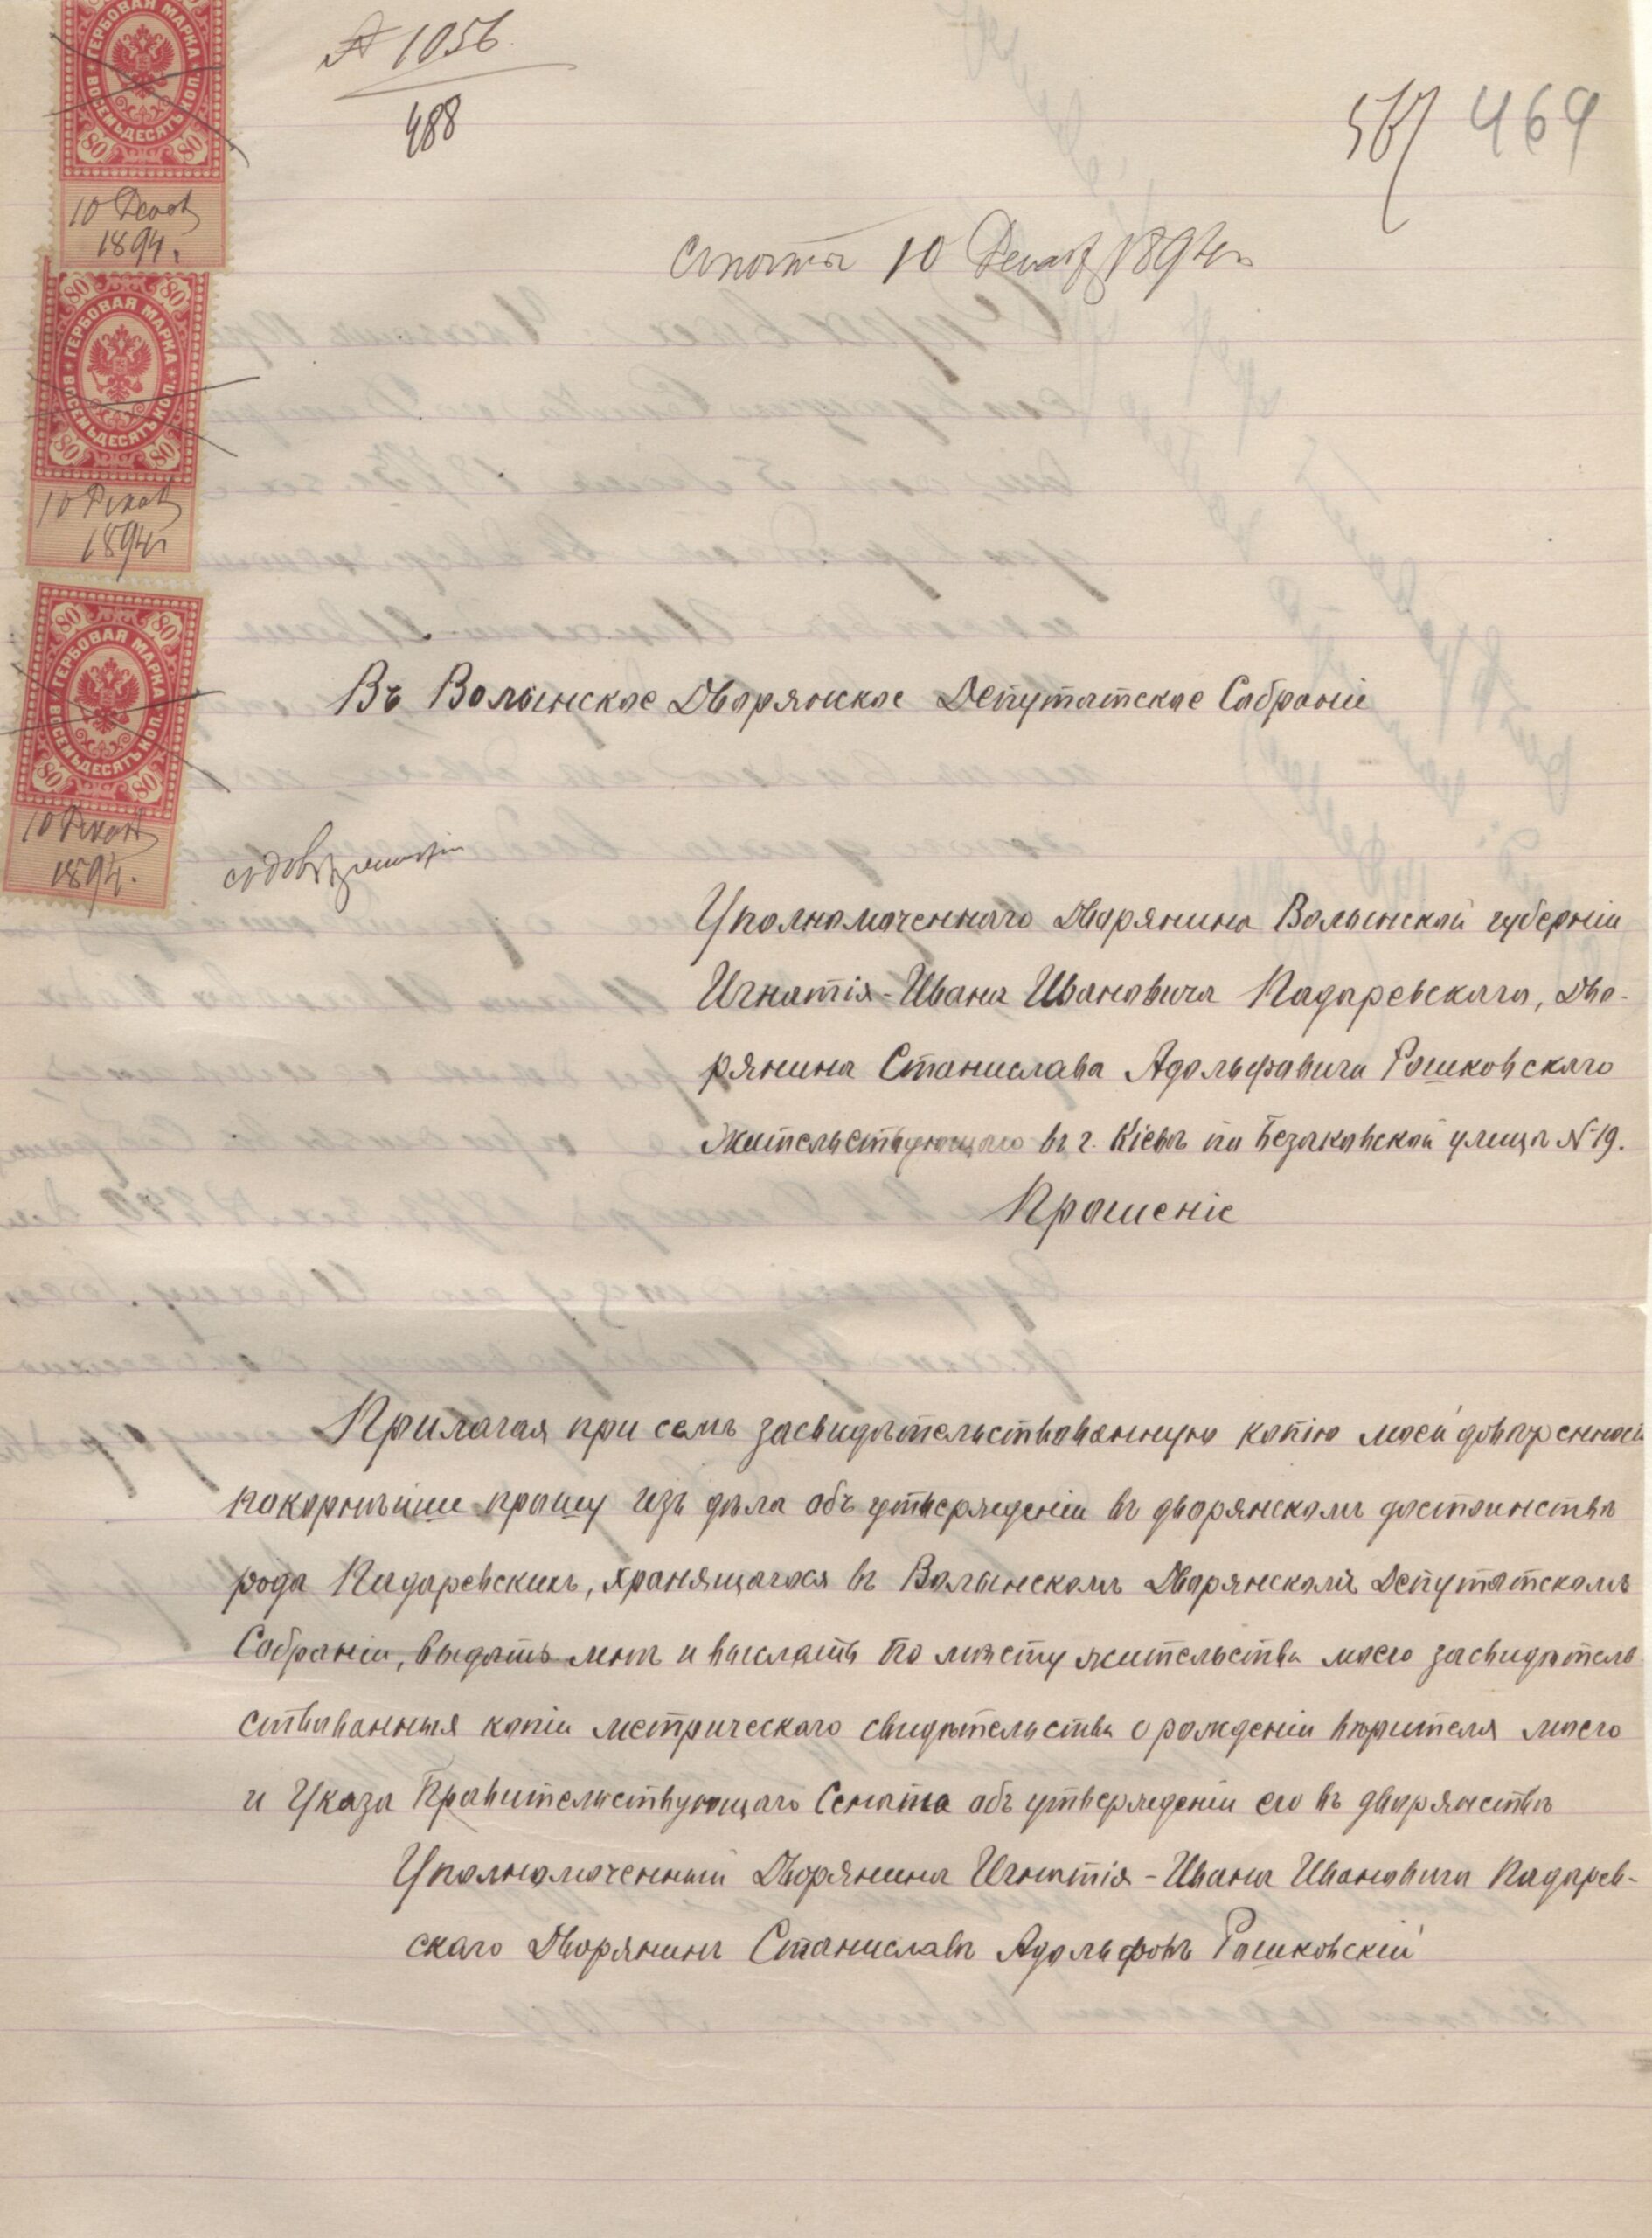 ГЕРБОВАЯ МАРКА
ВОСЕМЬДЕСЯТЪ КОП.
80 80
10 Декаб
1894.
80 80
ГЕРБОВАЯ МАРКА
ВОСЕМЬДЕСЯТЪ КОП.
80 80
10 Декаб
1894г
80 80
ГЕРБОВАЯ МАРКА
ВОСЕМЬДЕСЯТЪ КОП.
80 80
10 Декаб
1894.
№ 1056
488
469
10 Декаб 1894г
Въ Волынское Дворянское Депутатское Собраніе
Уполномоченнаго Дворянина Волынской губерніи
Игнатія-Ивана Ивановича Падаревскаго, Дво-
рянина Станислава Адольфовича Рашковскаго
Жительствующаго въ г. Кіевѣ по Безаковской улицѣ №19.
Прошеніе
Прилагая при семъ засвидѣтельствованную копію моей довѣренности
покорнѣйше прошу изъ дѣла объ утвержденіи въ дворянскомъ достоинствѣ
рода Падаревскихъ, хранящагося въ Волынскомъ Дворянскомъ Депутатскомъ
Собраніи, выдать мнѣ и выслать по мѣсту жительства моего засвидѣтель
ствованныя копіи метрическаго свидѣтельства о рожденіи вѣрителя моего
и Указа Правительствующаго Сената объ утвержденіи его въ дворянствѣ
Уполномоченный Дворянина Игнатія-Ивана Ивановича Падарев-
скаго Дворянинъ Станиславъ Адольфовъ Рашковскій